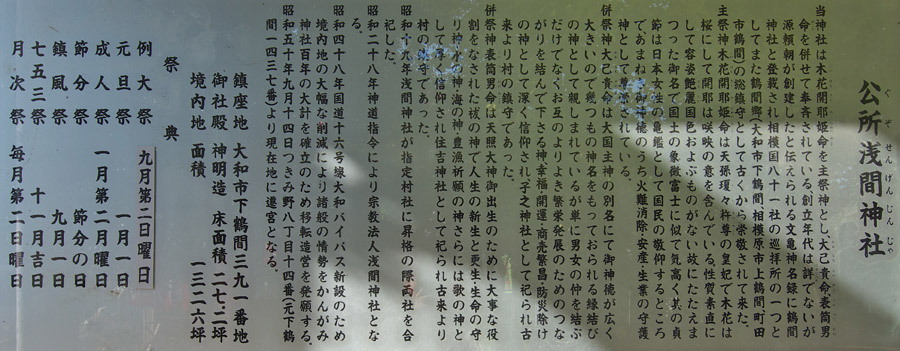 公所浅間神社
ぐぞせんげんじんじゃ
当神社は木花開耶姫命を主祭神とし、大己貴命表筒男
命を併せて奉斎されている。創立年代は詳でないが
源頼朝が創建したと伝えられる文亀神名録に鶴間
神社と登載され相模国八十一社の巡拝所の一つと
してまた鶴間郷(大和市下鶴間、相模原市上鶴間、町田
市鶴間)の総鎮守として古くから崇敬されて来た。
主祭神木花開耶姫命は天孫瓊々杵尊の皇妃で木花は
桜にして開耶は咲咲の意を含んでいる。性質素直に
して容姿艶麗国色およぶものがない故にたたえま
つった御名で国土の象徴富士に似て気高く其の貞
節は日本女性の亀鑑として国民の敬仰するところ
であまねく御神徳のうち火難消除・安産・生業の守護
神として尊崇されている。
併祭神大己貴命は大国主神の別名にて御神徳が広く
大きいので幾つもの神名をもっておられる。縁結び
の神として親しまれているが単に男女の仲を結ぶ
だけでなくお互のよりよき繁栄発展のためのつな
がりを結んで下さる神、幸福・開運・商売繁昌・防災除け
の神として深く信仰され子之神社として祀られ古
来より村の鎮守であった。
併祭神表筒男命は天照大神御出生のために大事な役
割をなされた祓の神で人生の新生と更生・生命の守
り神、水の神、海の神、豊漁祈願の神さらには歌の神と
して厚く信仰され住吉神社として祀られ古来より
村の鎮守であった。
昭和十九年浅間神社が指定村社に昇格の際両社を合
祀した。
昭和二十八年神道指令により宗教法人浅間神社とな
る。
昭和四十八年国道十六号線大和バイパス新設のため
境内地の大幅な削減により諸般の情勢をかんがみ
神社百年の大計を確立のため移転造営を発願する。
昭和五十年九月十四日つきみ野八丁目十四番(元下鶴
間一四三七番)より現在地に遷宮となる。
鎮座地 大和市下鶴間三九一番地
御社殿 神明造 床面積 二七・二坪
境内地 面積 一三二六坪
祭典
例大祭 九月第二日曜日
元旦祭 一月一日
成人祭 一月第二月曜日
節分祭 節分の日
鎮風祭 九月一日
七五三祭 十一月吉日
月次祭 毎月第二日曜日